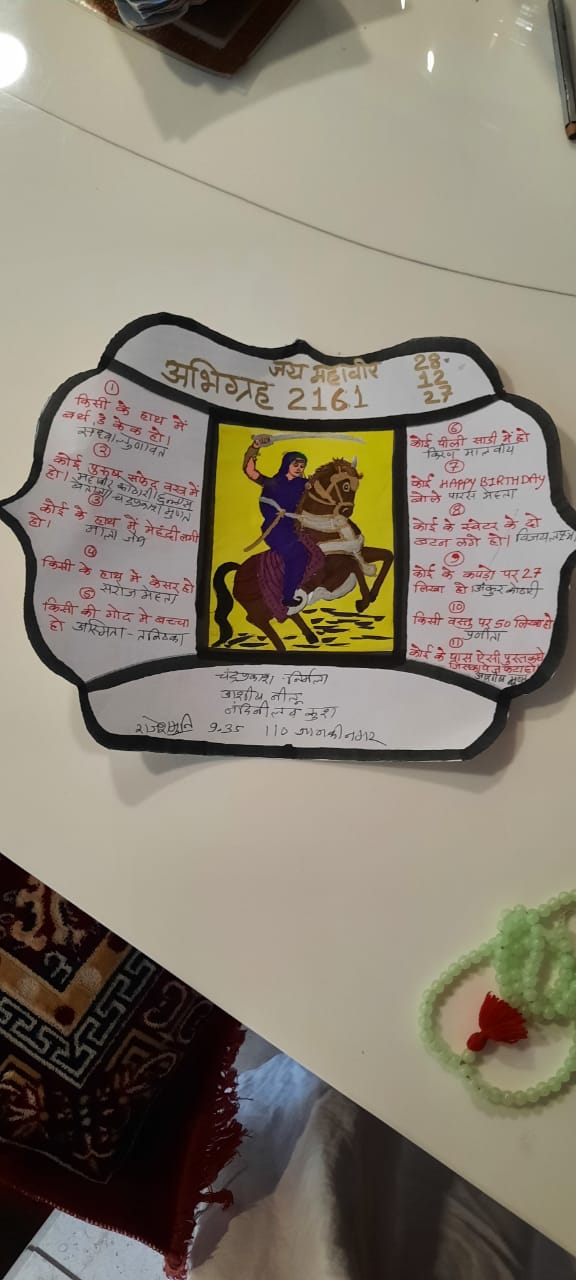 जय महावीर
अभिग्रह 2161
28
12
27
①
किसी के हाथ में
बर्थ डे केक हो।
②
कोई पुरुष सफेद वस्त्र में
हो।
③
कोई के हाथ में मेहंदी लगी
हो।
④
किसी के हाथ में केसर हो
सरोज मेहता
⑤
किसी की गोद मे बच्चा
हो अस्मिता -
⑥
कोई पीली साडी में हो
किरण मालवीय
⑦
कोई HAPPY BIRTHDAY
बोले पारस मेहता
⑧
कोई के स्वेटर के दो
बटन लगे हो।
⑨
कोई के कपड़ो पर 27
लिखा हो। अंकुर कोठारी
⑩
किसी वस्तु पर 50 लिखा हो
⑪
कोई के पास ऐसी पुस्तक हो
चंद्रप्रकाश - निर्मला
आशीष नीतू
राजेशमुनि 9.35 110 जानकी नगर